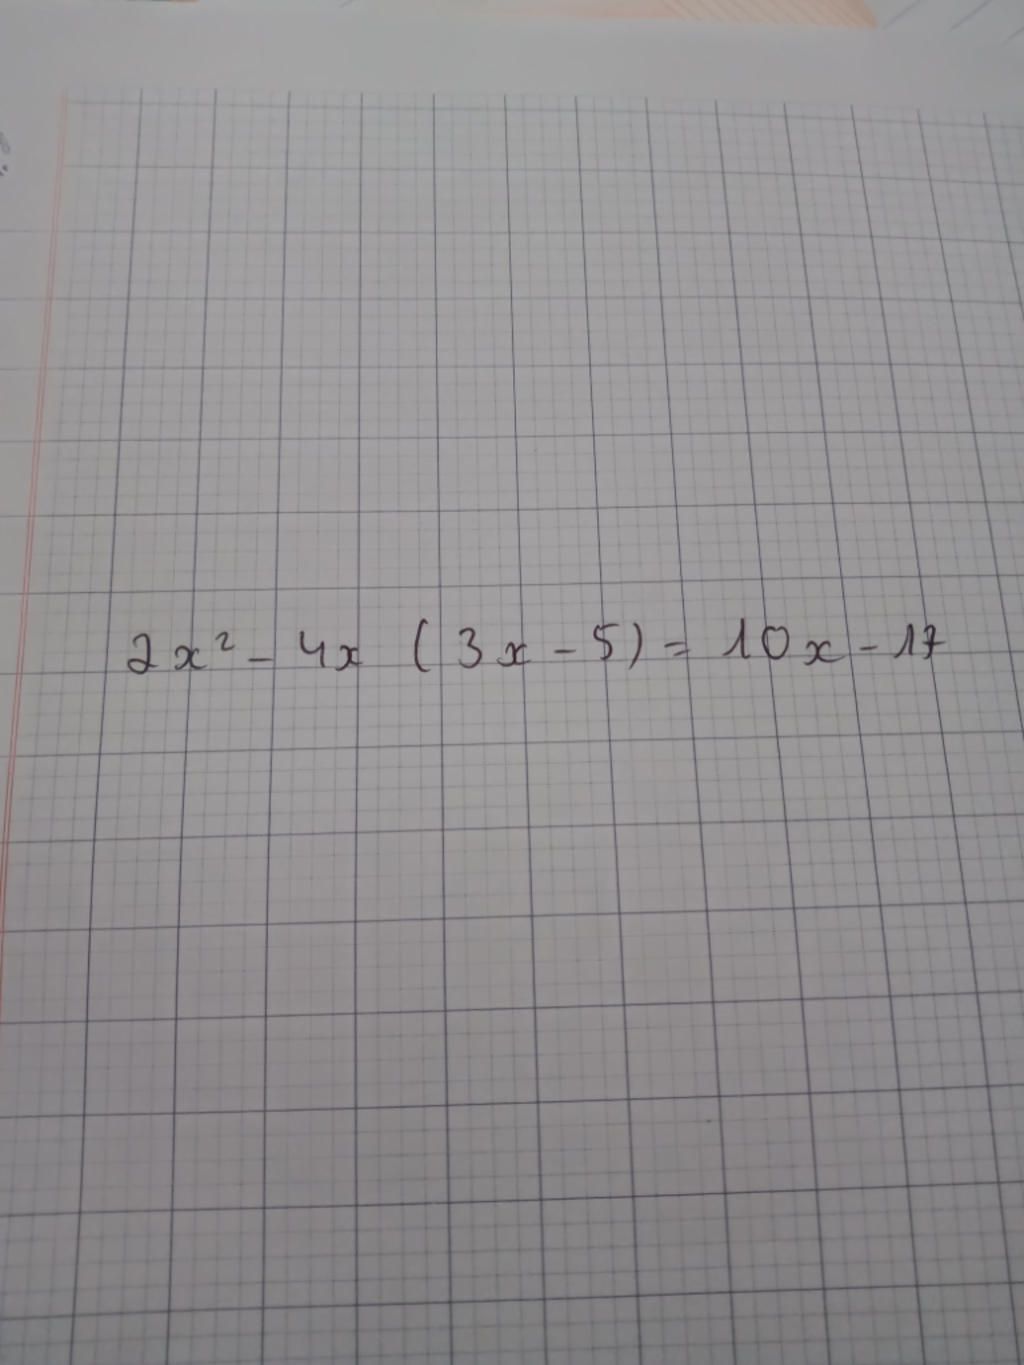 2x² - 4x (3x - 5) = 10x - 17